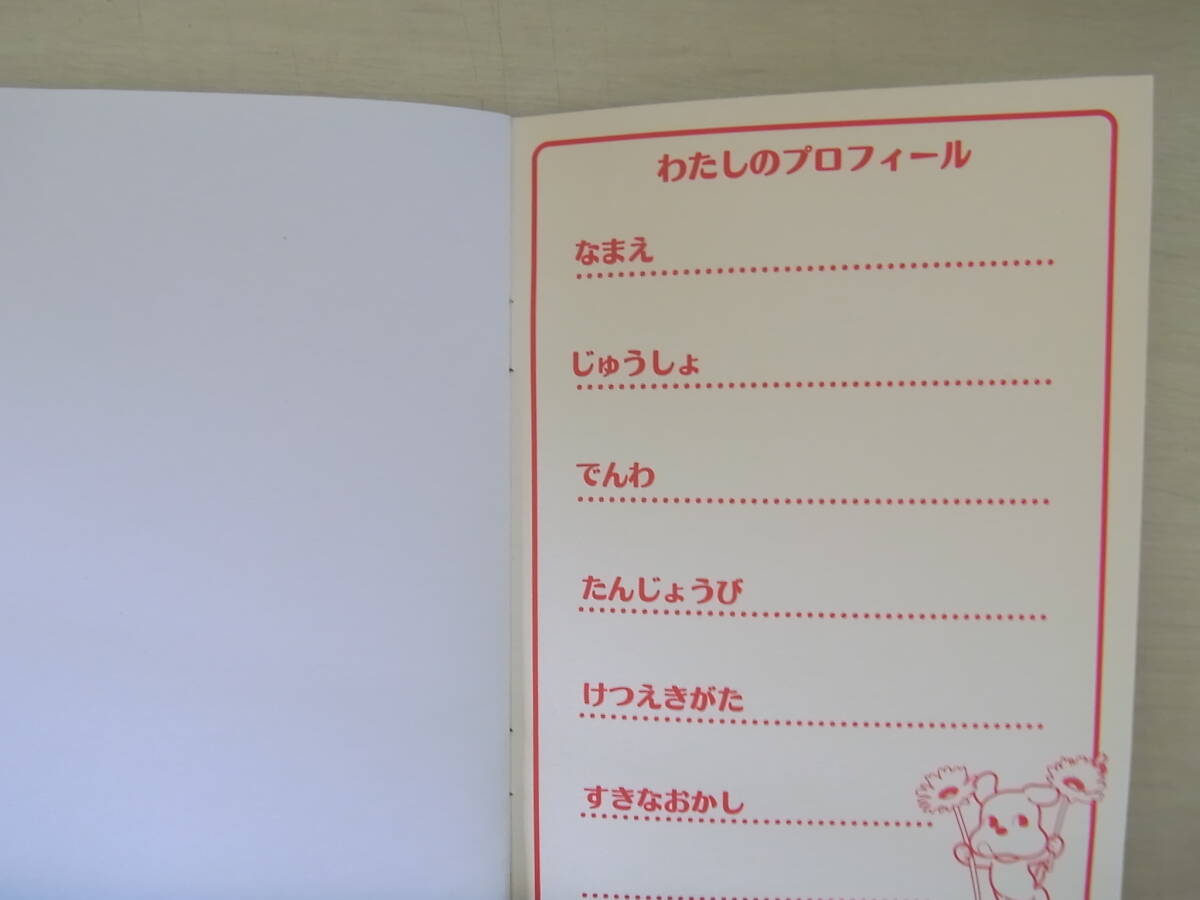 わたしのプロフィール
なまえ
じゅうしょ
でんわ
たんじょうび
けつえきがた
すきなおかし